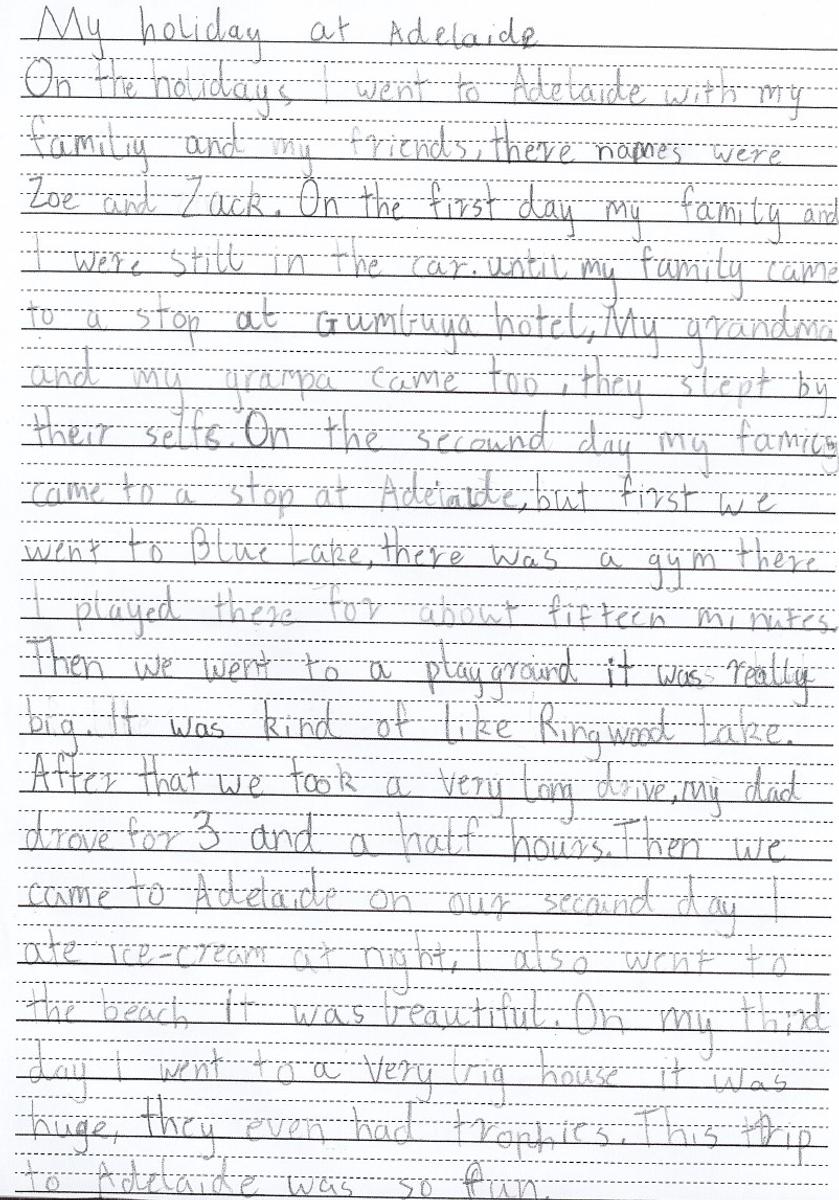 My holiday at Adelaide
On the holidays I went to Adelaide with my
familiy and my friends, there names were
Zoe and Zack. On the first day my family and
I were still in the car. until my family came
to a stop at Gumbuya hotel, My grandma
and my grampa came too, they slept by
their selfs. On the secound day my family
came to a stop at Adelaide, but first we
went to Blue Lake, there was a gym there
I played there for about fifteen minutes.
Then we went to a playground it was really
big. It was kind of like Ringwood Lake.
After that we took a very long drive, my dad
drove for 3 and a half hours. Then we
came to Adelaide on our secound day I
ate ice-cream at night, I also went to
the beach it was beautiful. On my third
day I went to a very big house it was
huge, they even had trophies. This trip
to Adelaide was so fun.